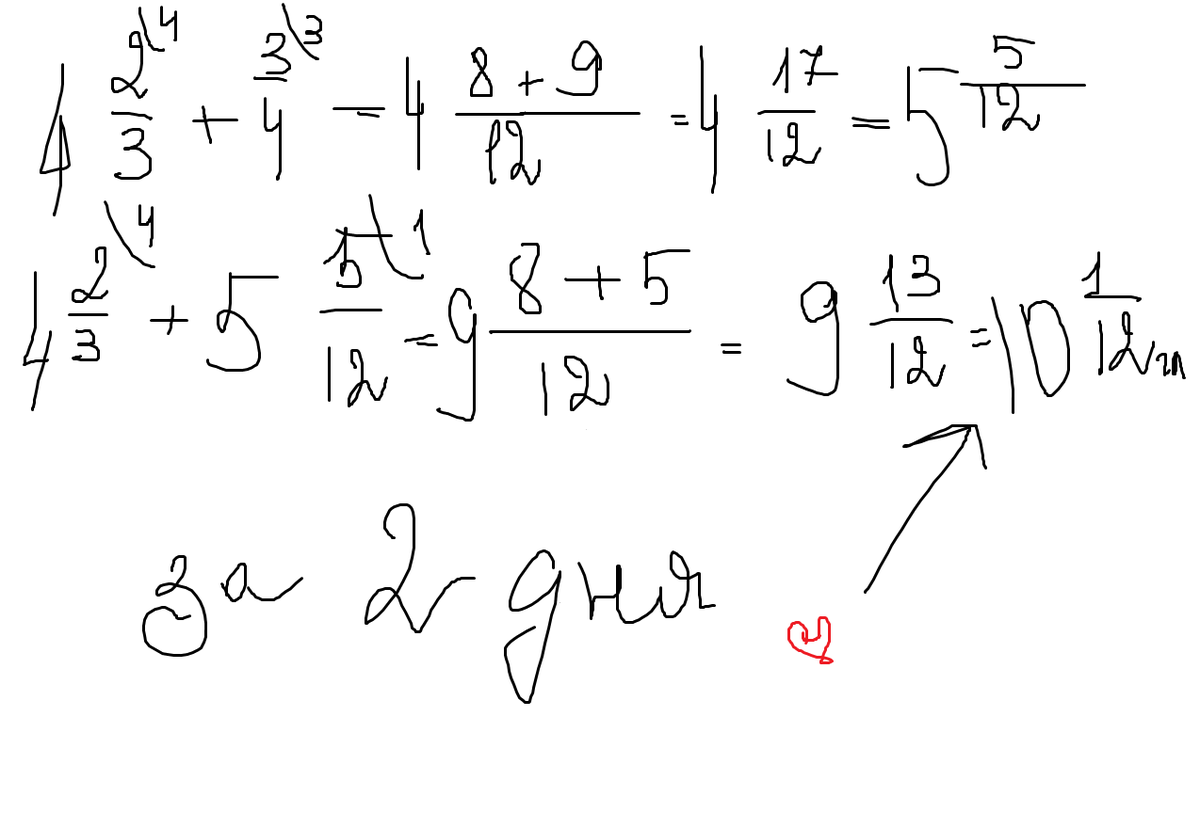 4 2\4/3 + 3\3/4 = 4 8+9/12 = 4 17/12 = 5 5/12
4 2\4/3 + 5 5\1/12 = 9 8+5/12 = 9 13/12 = 10 1/12
за 2 дня